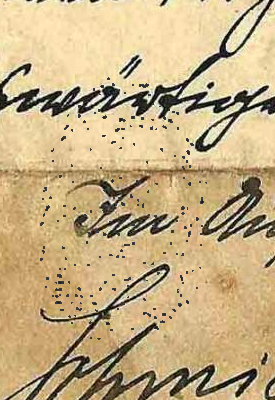 swärtige
Im Au
Schmi